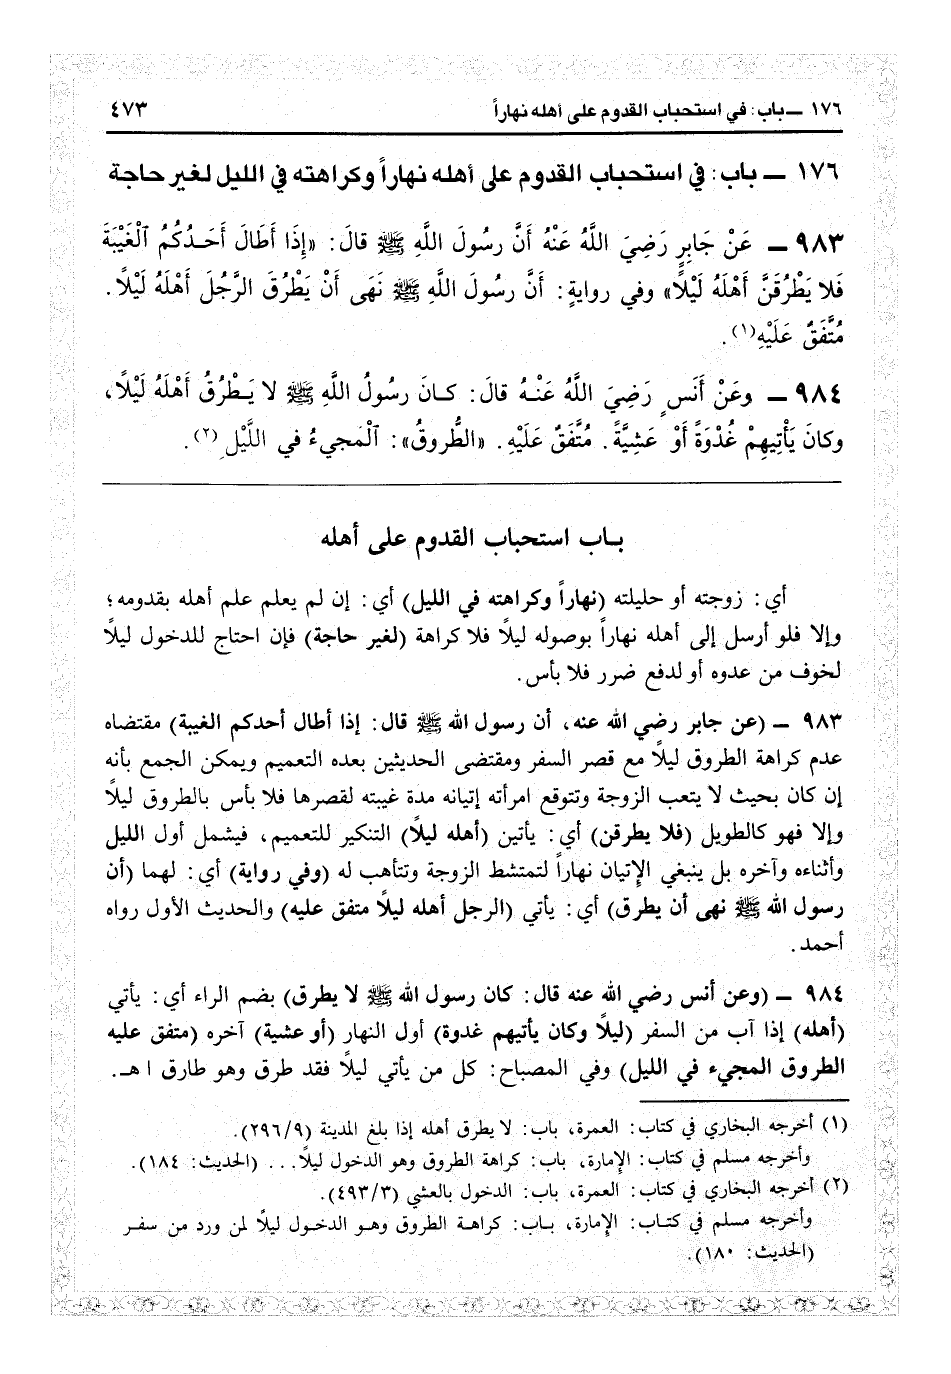 ١٧٦ ــ باب: في استحباب القدوم على أهله نهاراً ٤٧٣
١٧٦ ــ باب: في استحباب القدوم على أهله نهاراً وكراهته في الليل لغير حاجة
٩٨٣ ــ عَنْ جَابِرٍ رَضِيَ اللَّهُ عَنْهُ أَنَّ رسُولَ اللَّهِ ﷺ قالَ: «إِذَا أَطَالَ أَحَـدُكُمُ ٱلْغَيْبَةَ
فَلا يَطْرُقَنَّ أَهْلَهُ لَيْلًا» وفي روايةٍ: أَنَّ رسُولَ اللَّهِ ﷺ نَهَى أَنْ يَطْرُقَ الرَّجُلَ أَهْلَهُ لَيْلًا.
مُتَّفَقٌ عَلَيْهِ(١).
٩٨٤ ــ وعَنْ أَنَسٍ رَضِيَ اللَّهُ عَنْـهُ قالَ: كـانَ رسُولُ اللَّهِ ﷺ لا يَـطْرُقُ أَهْلَهُ لَيْلًا،
وكانَ يَأْتِيهِمْ غُدْوَةً أَوْ عَشِيَّةً. مُتَّفَقٌ عَلَيْهِ. «الطُّروقُ»: ٱلْمَجيءُ في اللَّيْلِ(٢).
بـاب استحباب القدوم على أهله
أي: زوجته أو حليلته (نهاراً وكراهته في الليل) أي: إن لم يعلم علم أهله بقدومه؛
وإلا فلو أرسل إلى أهله نهاراً بوصوله ليلًا فلا كراهة (لغير حاجة) فإن احتاج للدخول ليلًا
لخوف من عدوه أو لدفع ضرر فلا بأس.
٩٨٣ ــ (عن جابر رضي الله عنه، أن رسول الله ﷺ قال: إذا أطال أحدكم الغيبة) مقتضاه
عدم كراهة الطروق ليلًا مع قصر السفر ومقتضى الحديثين بعده التعميم ويمكن الجمع بأنه
إن كان بحيث لا يتعب الزوجة وتتوقع امرأته إتيانه مدة غيبته لقصرها فلا بأس بالطروق ليلًا
وإلا فهو كالطويل (فلا يطرقن) أي: يأتين (أهله ليلًا) التنكير للتعميم، فيشمل أول الليل
وأثناءه وآخره بل ينبغي الإتيان نهاراً لتمتشط الزوجة وتتأهب له (وفي رواية) أي: لهما (أن
رسول الله ﷺ نهى أن يطرق) أي: يأتي (الرجل أهله ليلًا متفق عليه) والحديث الأول رواه
أحمد.
٩٨٤ ــ (وعن أنس رضي الله عنه قال: كان رسول الله ﷺ لا يطرق) بضم الراء أي: يأتي
(أهله) إذا آب من السفر (ليلًا وكان يأتيهم غدوة) أول النهار (أو عشية) آخره (متفق عليه
الطروق المجيء في الليل) وفي المصباح: كل من يأتي ليلًا فقد طرق وهو طارق ا هـ.
(١) أخرجه البخاري في كتاب: العمرة، باب: لا يطرق أهله إذا بلغ المدينة (٢٩٦/٩).
وأخرجه مسلم في كتاب: الإمارة، باب: كراهة الطروق وهو الدخول ليلًا... (الحديث: ١٨٤).
(٢) أخرجه البخاري في كتاب: العمرة، باب: الدخول بالعشي (٤٩٣/٣).
وأخرجه مسلم في كتـاب: الإمارة، بـاب: كراهـة الطروق وهـو الدخـول ليلًا لمن ورد من سفـر
(الحديث: ١٨٠).